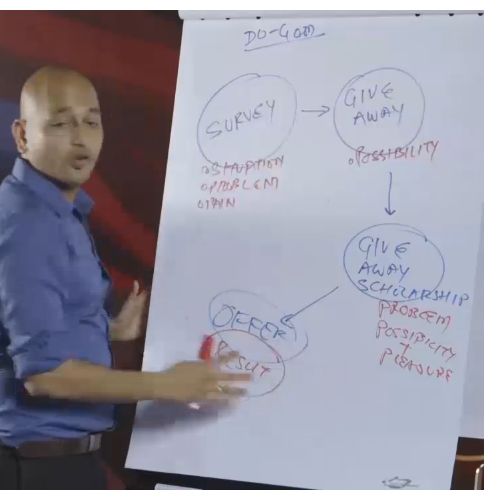 DO-GOOD
SURVEY
SITUATION
PROBLEM
PAIN
GIVE
AWAY
POSSIBILITY
GIVE
AWAY
SCHOLARSHIP
PROBLEM
POSSIBILITY
+
PLEASURE
OFFER
RESULT